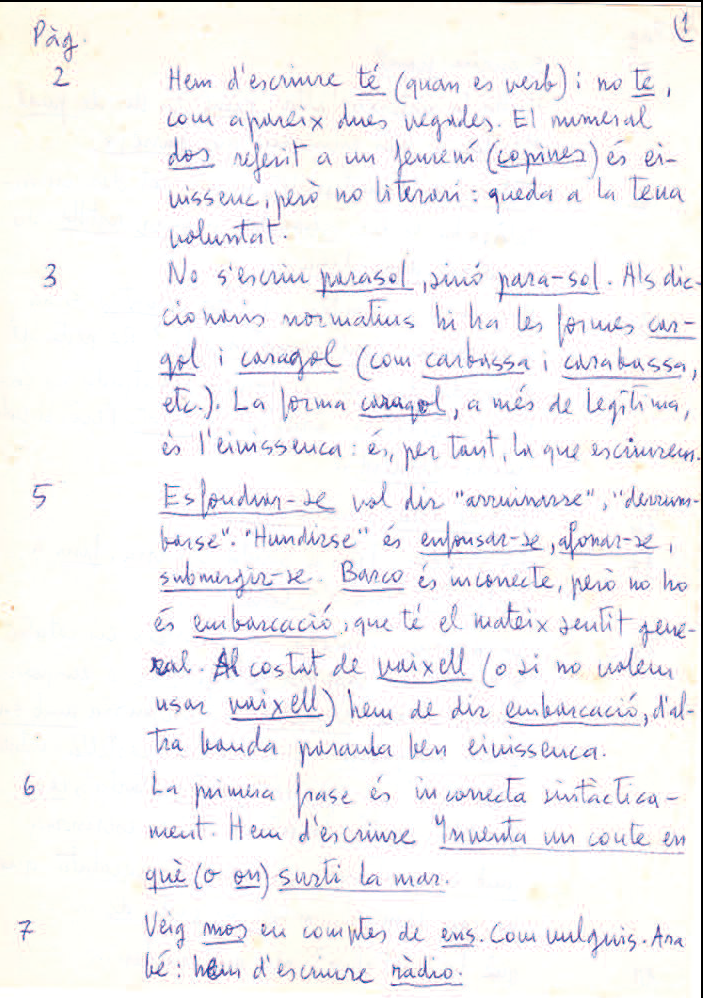 (1
Pàg.
2 Hem d'escriure té (quan es verb) i no te,
com apareix dues vegades. El numeral
dos referit a un femení (copines) és ei-
vissenc, però no literari: queda a la teua
voluntat.
3 No s'escriu parasol, sinó para-sol. Als dic-
cionaris normatius hi ha les formes car-
gol i caragol (com carbassa i carabassa,
etc.). La forma caragol, a més de legítima,
és l'eivissenca: és, per tant, la que escriurem.
5 Esfondrar-se vol dir "arruinarse", "derrum-
barse". "Hundirse" és enfonsar-se, afonar-se,
submergir-se. Barco és incorrecte, però no ho
és embarcació, que té el mateix sentit gene-
ral. Al costat de vaixell (o si no volem
usar vaixell) hem de dir embarcació, d'al-
tra banda paraula ben eivissenca.
6 La primera frase és incorrecta sintàctica-
ment. Hem d'escriure "Inventa un conte en
què (o on) surti la mar.
7 Veig mos en comptes de ens. Com vulguis. Ara
bé: hem d'escriure ràdio.